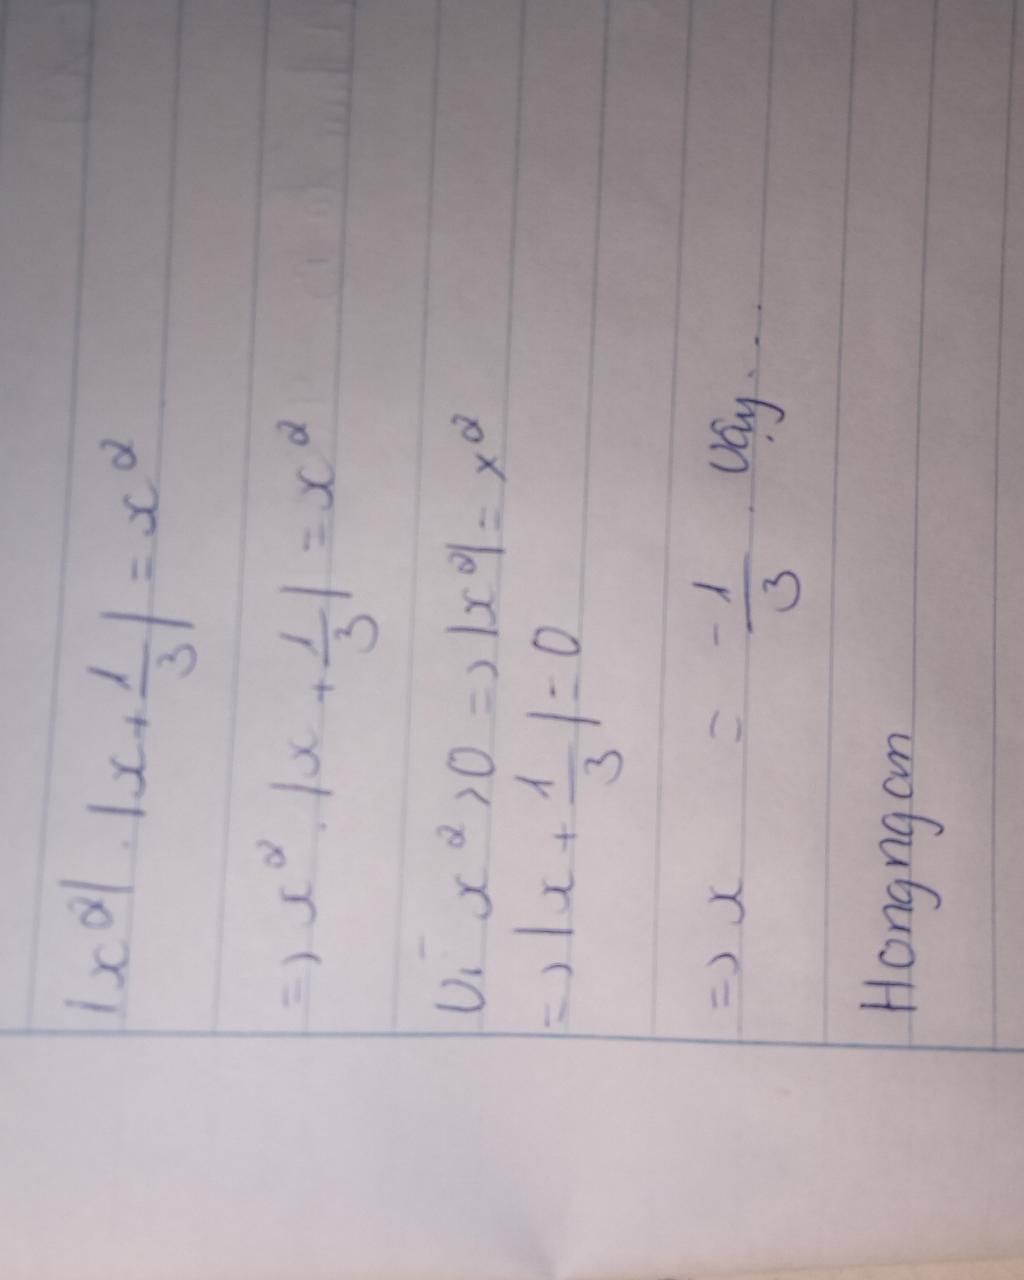 |x²| . |x + 1/3| = x²
=> x² . |x + 1/3| = x²
Vì x² > 0 => |x²| = x²
=> |x + 1/3| = 0
=> x = -1/3 Vậy....
Hongngan